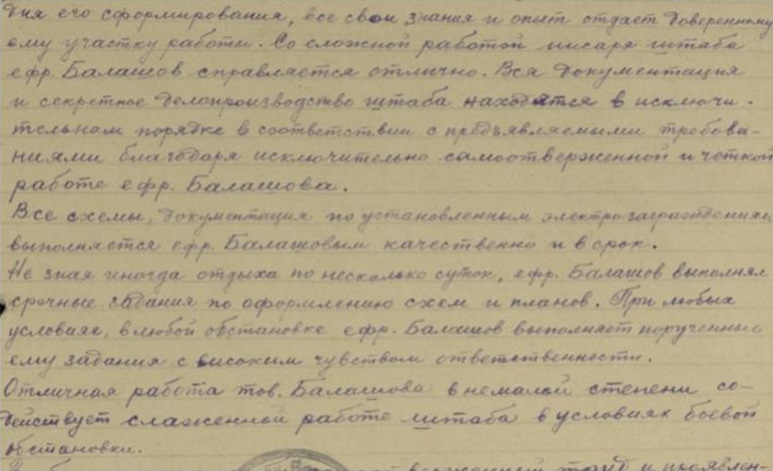 дня его сформирования, все свои знания и опыт отдает доверенному
ему участку работы. Со сложной работой писаря штаба
ефр. Балашов справляется отлично. Вся документация
и секретное делопроизводство штаба находятся в исключи-
тельном порядке в соответствии с предъявляемыми требова-
ниями благодаря исключительно самоотверженной и четкой
работе ефр. Балашова.
Все схемы, документация по установленным электрозаграждениям
выполняется ефр. Балашовым качественно и в срок.
Не зная иногда отдыха по несколько суток, ефр. Балашов выполнял
срочные задания по оформлению схем и планов. При любых
условиях, в любой обстановке ефр. Балашов выполняет порученные
ему задания с высоким чувством ответственности.
Отличная работа тов. Балашова в немалой степени со-
действует слаженной работе штаба в условиях боевой
обстановки.
труд и проявлен-